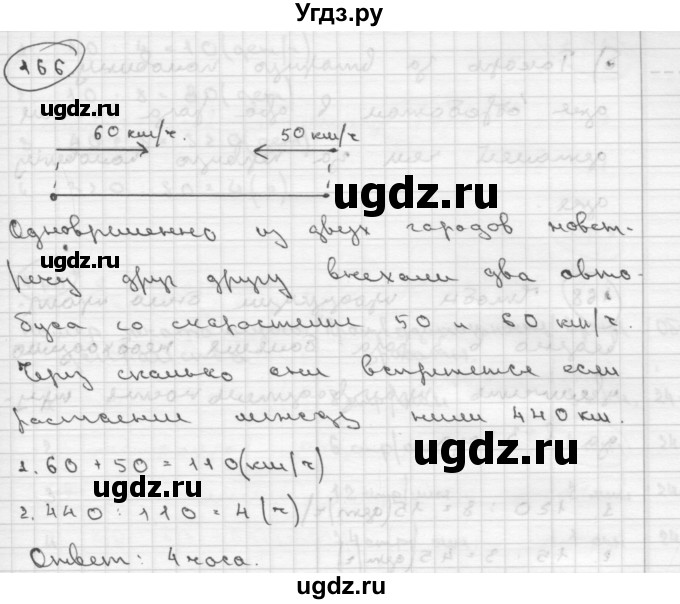 Угдз.ру
166
ugdz.ru
60 км/ч. 50 км/ч
ugdz.ru
ugdz.ru
Одновременно из двух городов навст-
речу друг другу выехали два авто-
ugdz.ru
буса со скоростями 50 и 60 км/ч.
ugdz.ru
Через сколько они встретятся если
растаение между ними 440 км.
ugdz.ru
1. 60 + 50 = 110 (км/ч)
ugdz.ru
2. 440 : 110 = 4 (ч)
ugdz.ru
Ответ: 4 часа.
ugdz.ru